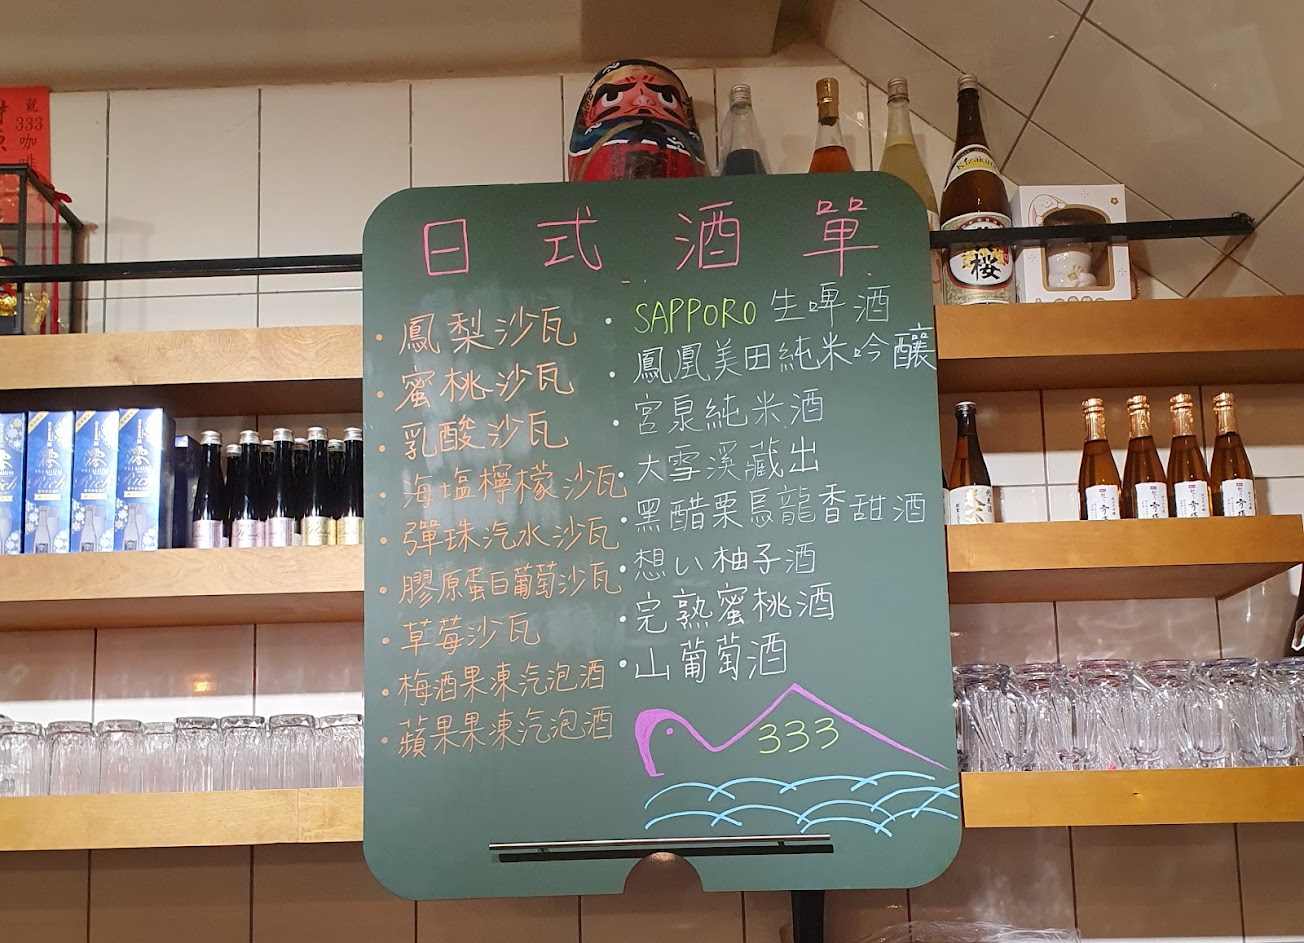 日式酒單
鳳梨沙瓦
蜜桃沙瓦
乳酸沙瓦
海塩檸檬沙瓦
彈珠汽水沙瓦
膠原蛋白葡萄沙瓦
草莓沙瓦
梅酒果凍汽泡酒
蘋果果凍汽泡酒
SAPPORO生啤酒
鳳凰美田純米吟釀
宮泉純米酒
大雪溪藏出
黑醋栗烏龍香甜酒
想い柚子酒
完熟蜜桃酒
山葡萄酒
333
333咖啡
Kizakura
桜